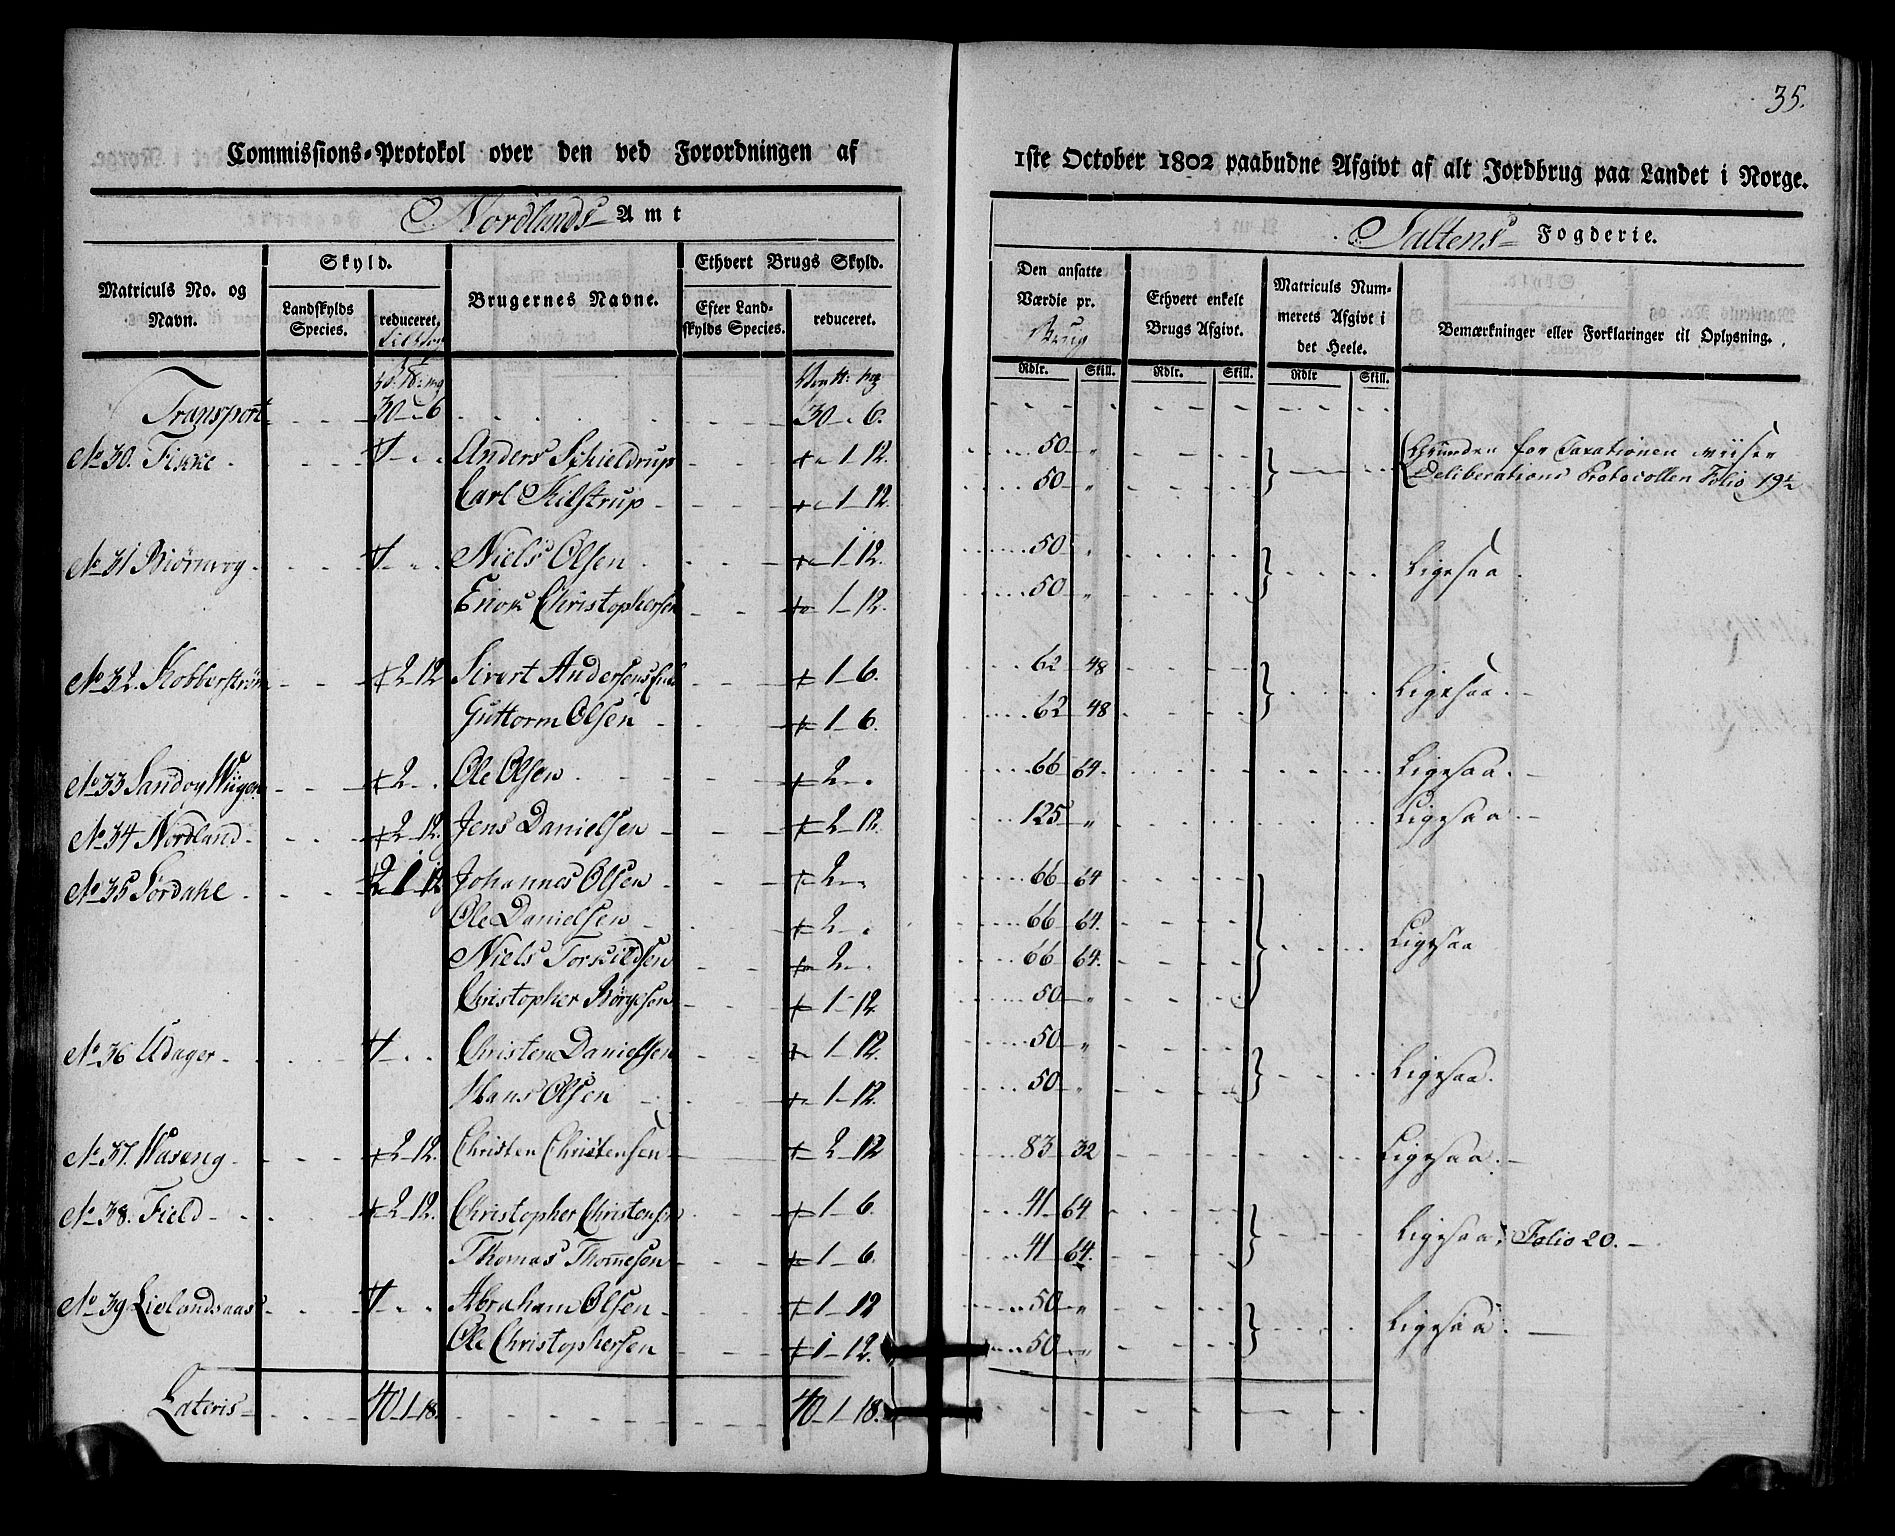 35.
Commissions-Protokol over den ved Forordningen af 1ste October 1802 paabudne Afgivt af alt Jordbrug paa Landet i Norge.
Nordlands Amt
Saltens Fogderie.
Matriculs No. og Navn.
Skyld.
Landskylds Species.
reduceret,
Brugernes Navne.
Ethvert Brugs Skyld.
Efter Landskylds Species.
reduceret.
Den ansatte Værdie pr. Brug
Ethvert enkelt Brugs Afgivt.
Matriculs Nummerets Afgivt i det Heele.
Bemærkninger eller Forklaringer til Oplysning.
Rdlr. Skill. Rdlr. Skill. Rdlr Skill.
Transport 30 - 6 30 - 6.
No 30. Anders Schieldrup 1 - 12. 50 Grunden for Taxationen viiser
Carl Skilstrup 1 - 12. 50 Deliberations Protocollen Folio 19
No 31 Niels Olsen 1 - 12. 50 Ligesaa.
Enok Christophersen 1 - 12. 50
No 32. 2 - 12 Sivert Andersens 1 - 6. 62 48 Ligesaa.
Guttorm Olsen 1 - 6. 62 48
No 33 2 Ole Olsen 2 66 64. Ligesaa.
No 34 Nordland 2 - 12. Jens Danielsen 2 - 12. 125 Ligesaa.
No 35 Sørdahl 2 - 1 - 12 Johannes Olsen 2 66 64
Ole Danielsen 2 66 64. Ligesaa
Niels Torkildsen 2 66 64.
Christopher Børgesen 1 - 12 50
No 36 Udager Christen Danielsen 1 - 12. 50
Hans Olsen 1 - 12. 50 Ligesaa.
No 37. Waseng 2 - 12. Christen Christensen 2 - 12 83 32 Ligesaa.
No 38. Field 2 - 12. Christopher Christensen 1 - 6. 41 64 Ligesaa, Folio 20.
Thomas Thomesen 1 - 6. 41 64.
No 39 Lielandsaas Abraham Olsen 1 - 12 50 Ligesaa.
Ole Christophersen 1 - 12. 50
Lateris 40 - 1 - 18. 40 - 1 - 18.